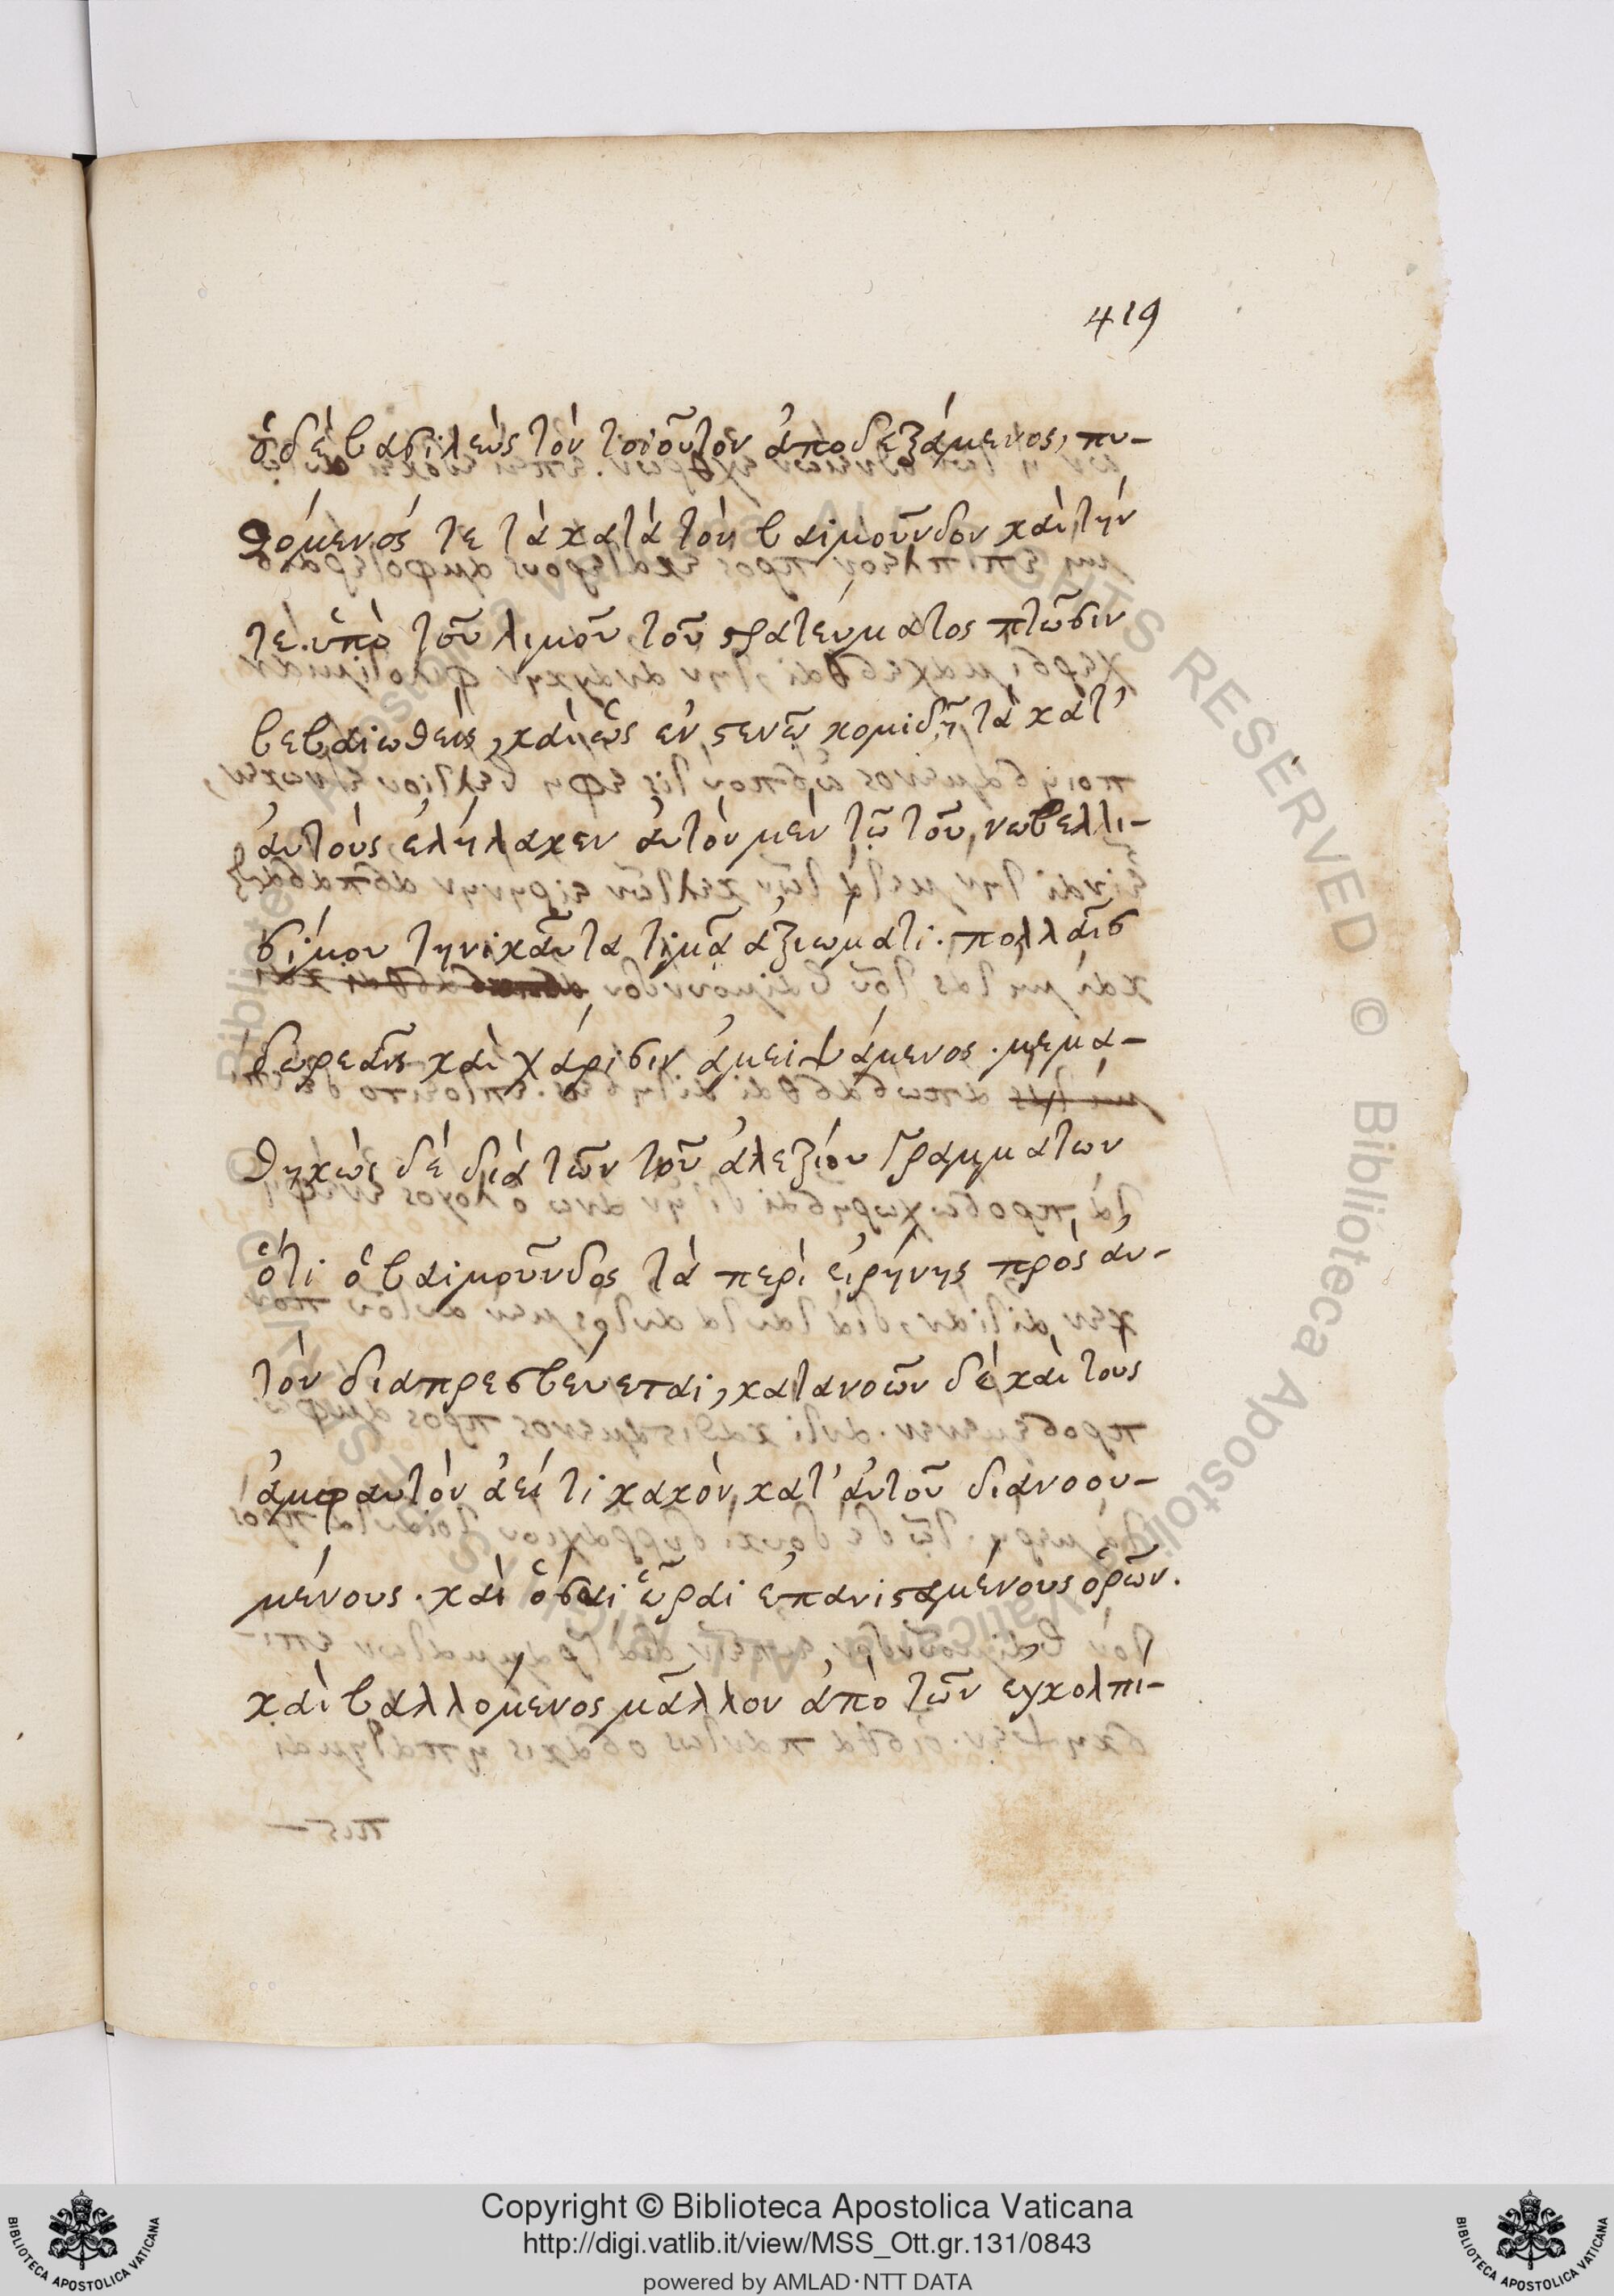 419
ὁ δὲ βασιλεὺς τὸν τοιοῦτον ἀποδεξάμενος, πυ-
θόμενός τε τὰ κατὰ τὸν βαϊμοῦνδον καὶ τήν
τε ὑπὸ τοῦ λιμοῦ τοῦ στρατεύματος πτῶσιν
βεβαιωθεὶς, καὶ ὡς ἐν στενῶ κομιδῆ τὰ κατ'
ἀυτοὺς ἐλήλακεν ἀυτὸν μὲν τῶ τοῦ νωβελλι-
σίμου τηνικαῦτα τιμᾶ ἀξιώματι. πολλαῖς
δωρεαῖς καὶ χάρισιν ἀμειψάμενος. μεμα-
θηκὼς δὲ διὰ τῶν τοῦ ἀλεξίου γραμμάτων
ὅτι ὁ βαϊμοῦνδος τὰ περὶ εἰρήνης πρὸς ἀυ-
τὸν διαπρεσβεύεται, κατανοῶν δὲ καὶ τοὺς
ἀμφαυτὸν ἀεί τι κακὸν κατ' ἀυτοῦ διανοου-
μένους. καὶ ὅσαι ὧραι ἐπανισταμένους ὁρῶν.
καὶ βαλλόμενος μᾶλλον ἀπὸ τῶν ἐγκολπι-
Copyright © Biblioteca Apostolica Vaticana
http://digi.vatlib.it/view/MSS_Ott.gr.131/0843
powered by AMLAD·NTT DATA
BIBLIOTECA APOSTOLICA VATICANA
BIBLIOTECA APOSTOLICA VATICANA